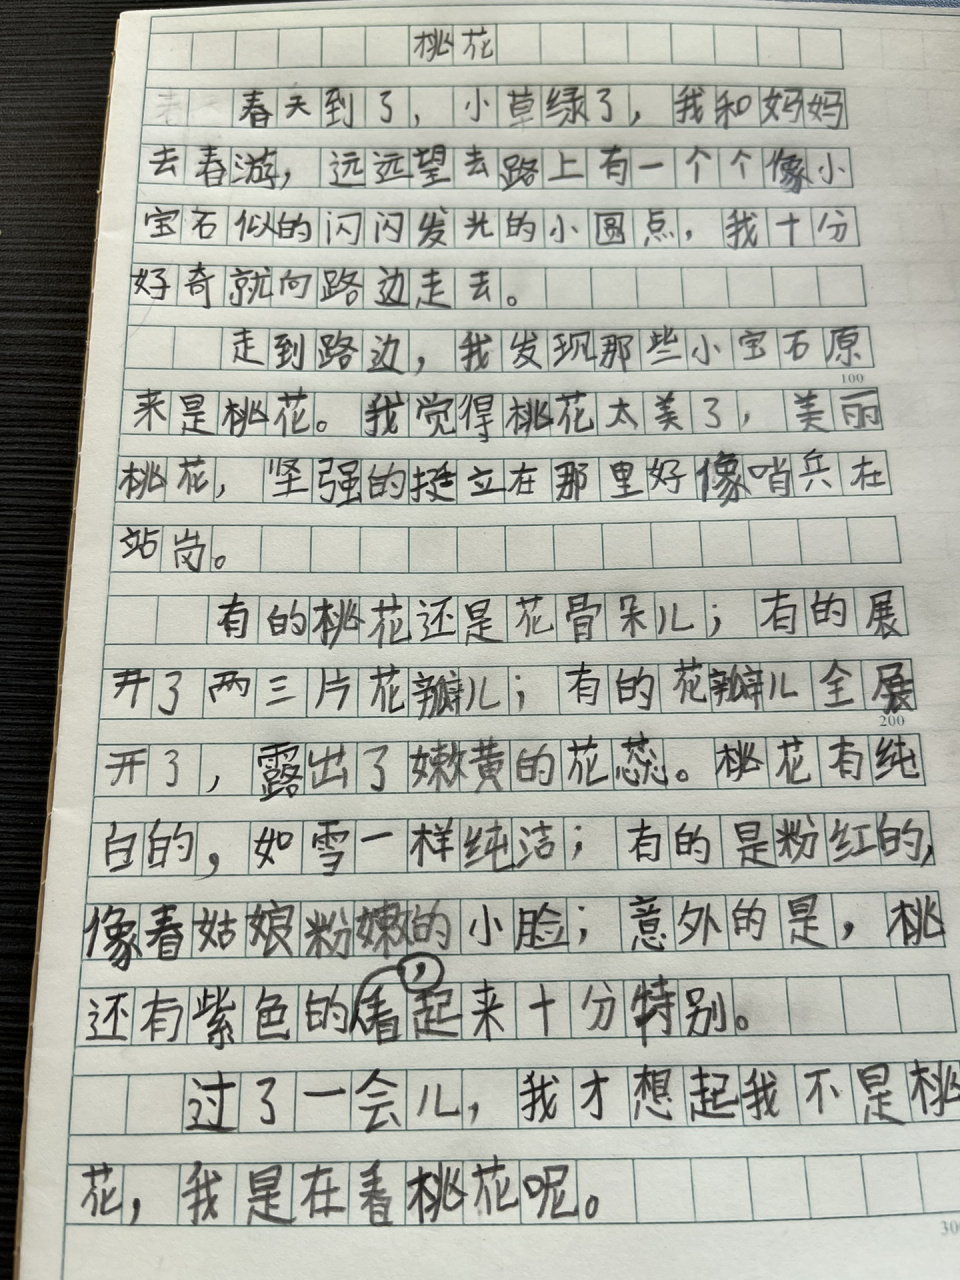 桃花
春天到了，小草绿了，我和妈妈
去春游，远远望去路上有一个个像小
宝石似的闪闪发光的小圆点，我十分
好奇就向路边走去。
走到路边，我发现那些小宝石原
100
来是桃花。我觉得桃花太美了，美丽
桃花，坚强的挺立在那里好像哨兵在
站岗。
有的桃花还是花骨朵儿；有的展
开了两三片花瓣儿；有的花瓣儿全展
200
开了，露出了嫩黄的花蕊。桃花有纯
白的，如雪一样纯洁；有的是粉红的，
像春姑娘粉嫩的小脸；意外的是，桃
还有紫色的，看起来十分特别。
过了一会儿，我才想起我不是桃
花，我是在看桃花呢。
300